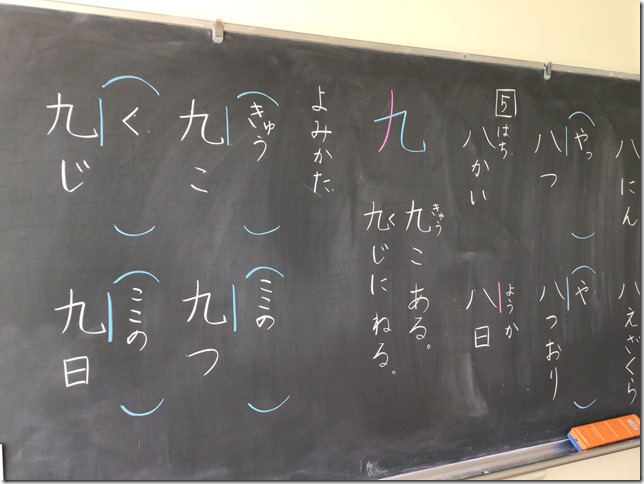 八にん
八えざくら
やっ
八つ
や
八つおり
5
はち
八かい
ようか
八日
九
きゅう
九こ ある。
く
九じにねる。
よみかた
きゅう
九こ
ここの
九つ
く
九じ
ここの
九日